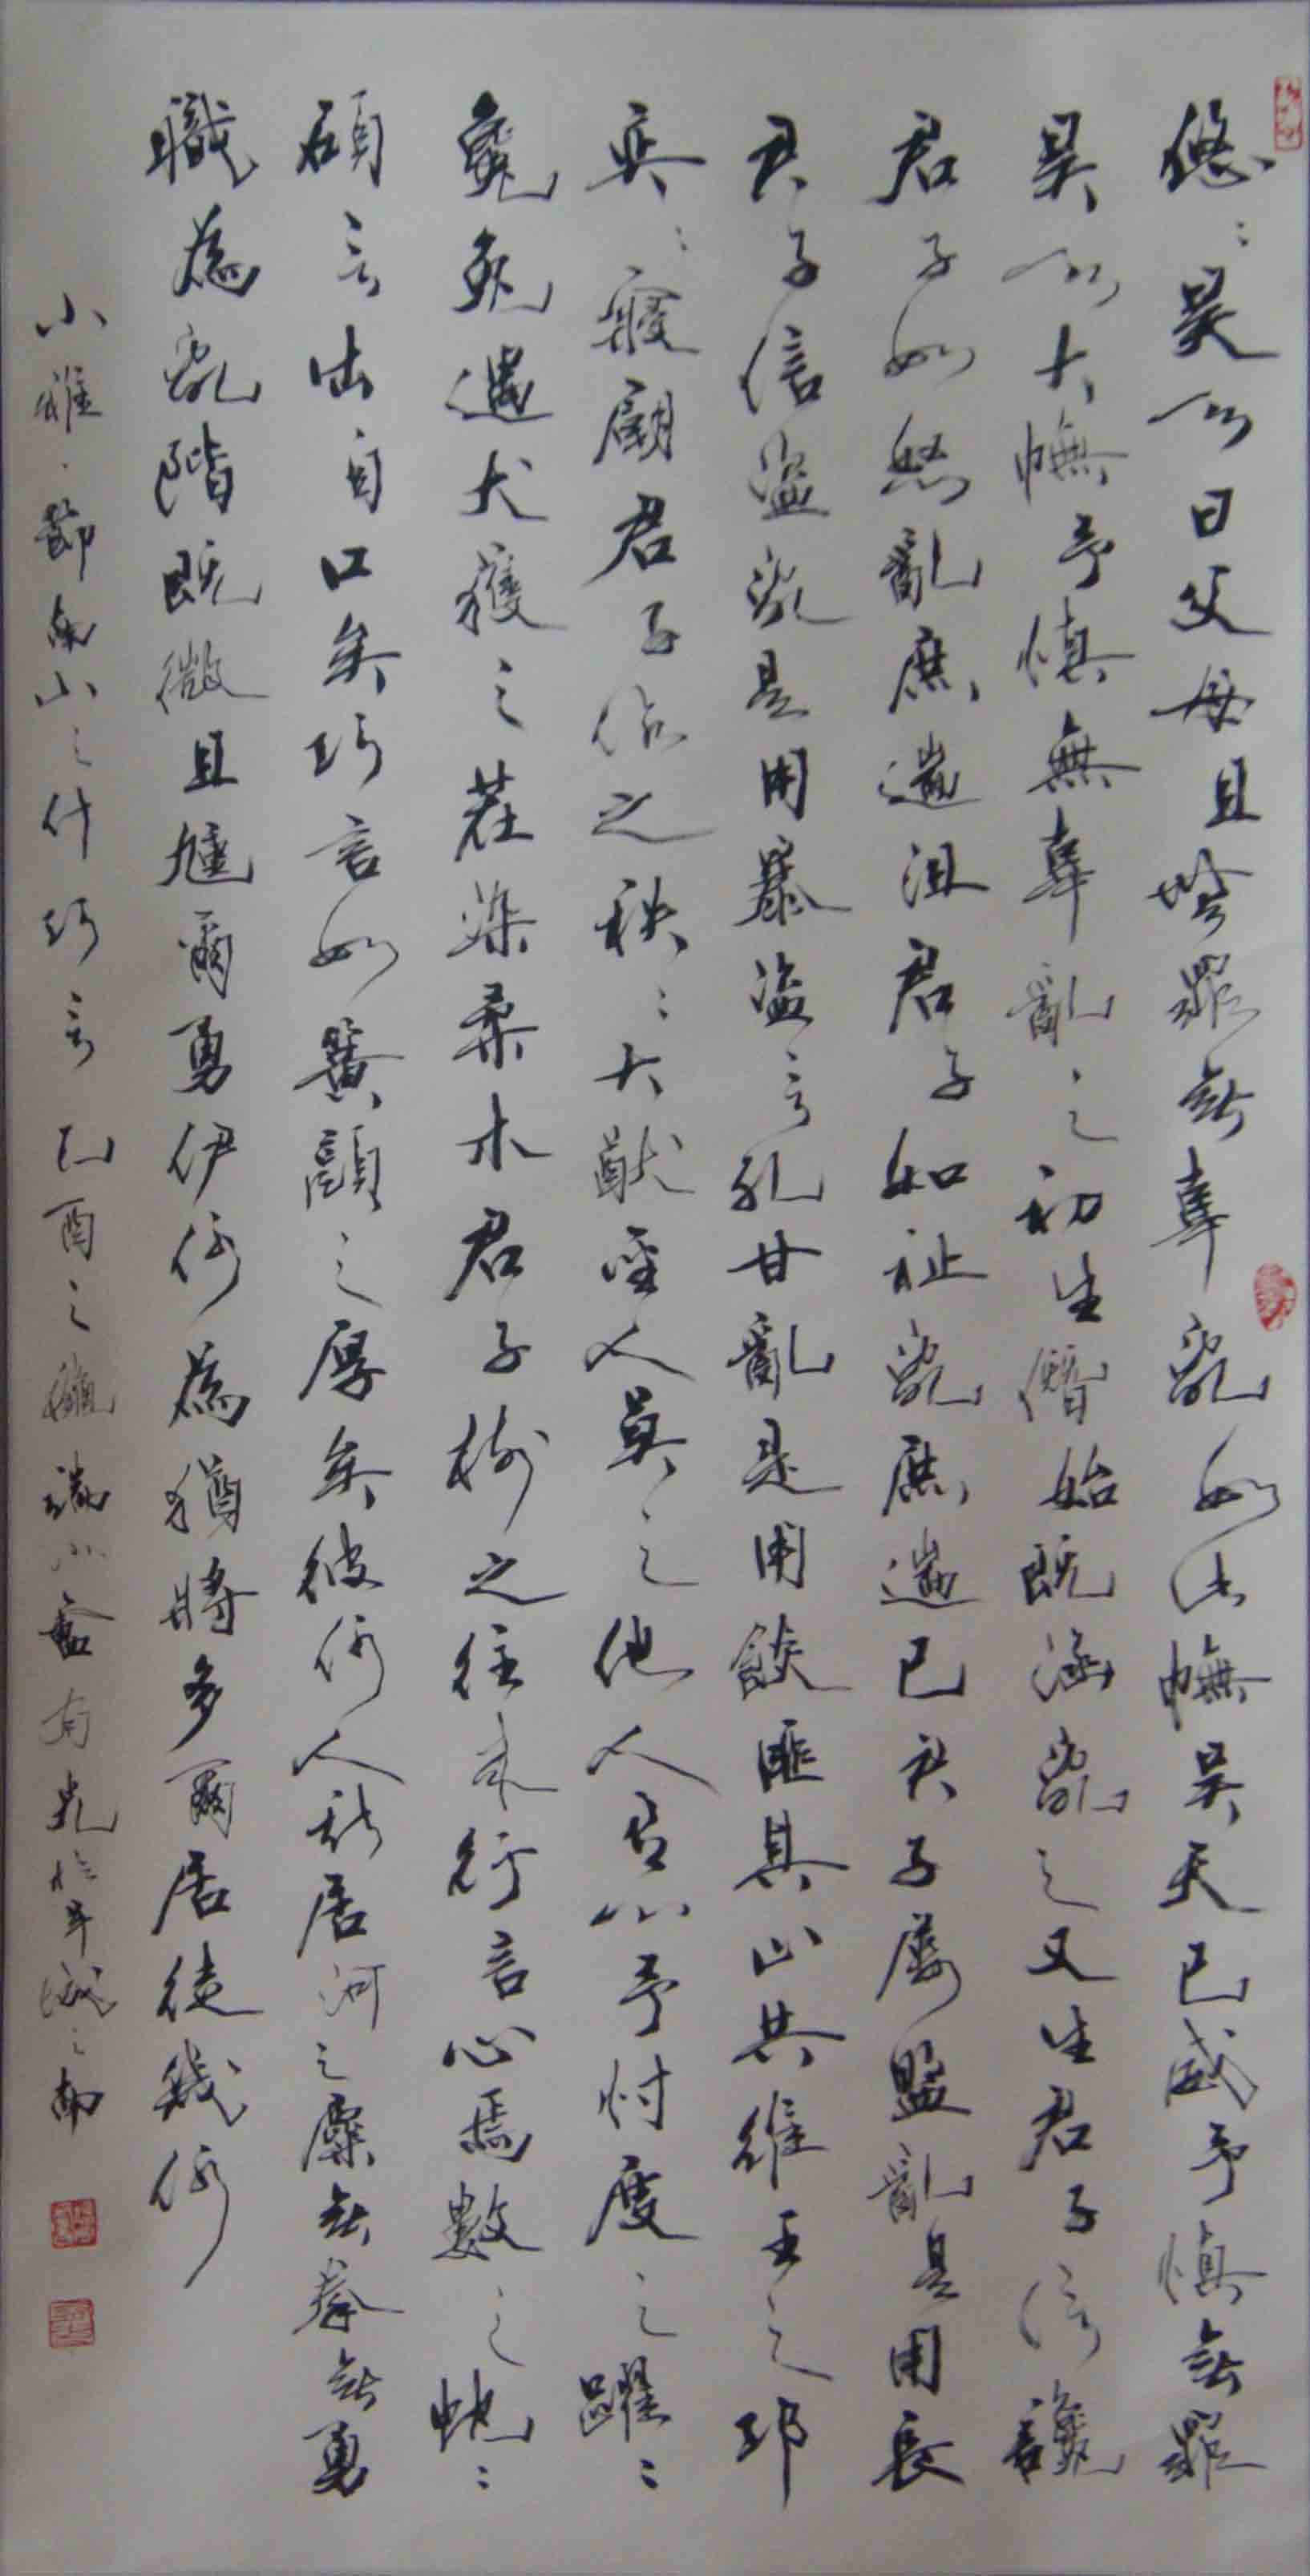 悠〻昊天曰父母且無罪無辜亂如此幠昊天已威予慎無罪
昊天大幠予慎無辜亂之初生僭始既涵亂之又生君子信讒
君子如怒亂庶遄沮君子如祉亂庶遄已君子屢盟亂是用長
君子信盜亂是用暴盜言孔甘亂是用餤匪其止共維王之邛
奕〻寢廟君子作之秩〻大猷聖人莫之他人有心予忖度之躍〻
毚兔遇犬獲之荏染柔木君子樹之往來行言心焉數之蛇〻
碩言出自口矣巧言如簧顏之厚矣彼何人斯居河之麋無拳無勇
職為亂階既微且尰爾勇伊何為猶將多爾居徒幾何
小雅·節南山之什巧言 乙酉之秋 於羊城之南